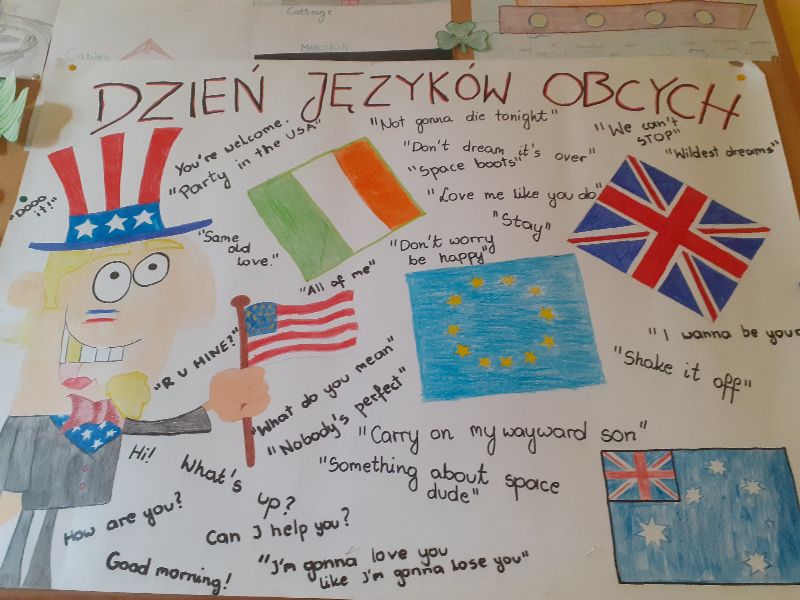 Cottage
Cabins
MANSION
DZIEŃ JĘZYKÓW OBCYCH
You're welcome.
"Party in the USA"
"Not gonna die tonight"
"We can't
STOP"
"Don't dream it's over"
"Wildest dreams"
"Space boots"
"DOOO
it!"
"Love me like you do"
"Same
old
love."
"Stay"
"Don't worry
be happy"
"All of me"
"R U MINE?"
"I wanna be your
"Shake it off"
"What do you mean"
"Nobody's perfect"
"Carry on my wayward son"
"Something about space
dude"
Hi!
What's
up?
How are you?
Can I help you?
Good morning!
"I'm gonna love you
like I'm gonna lose you"